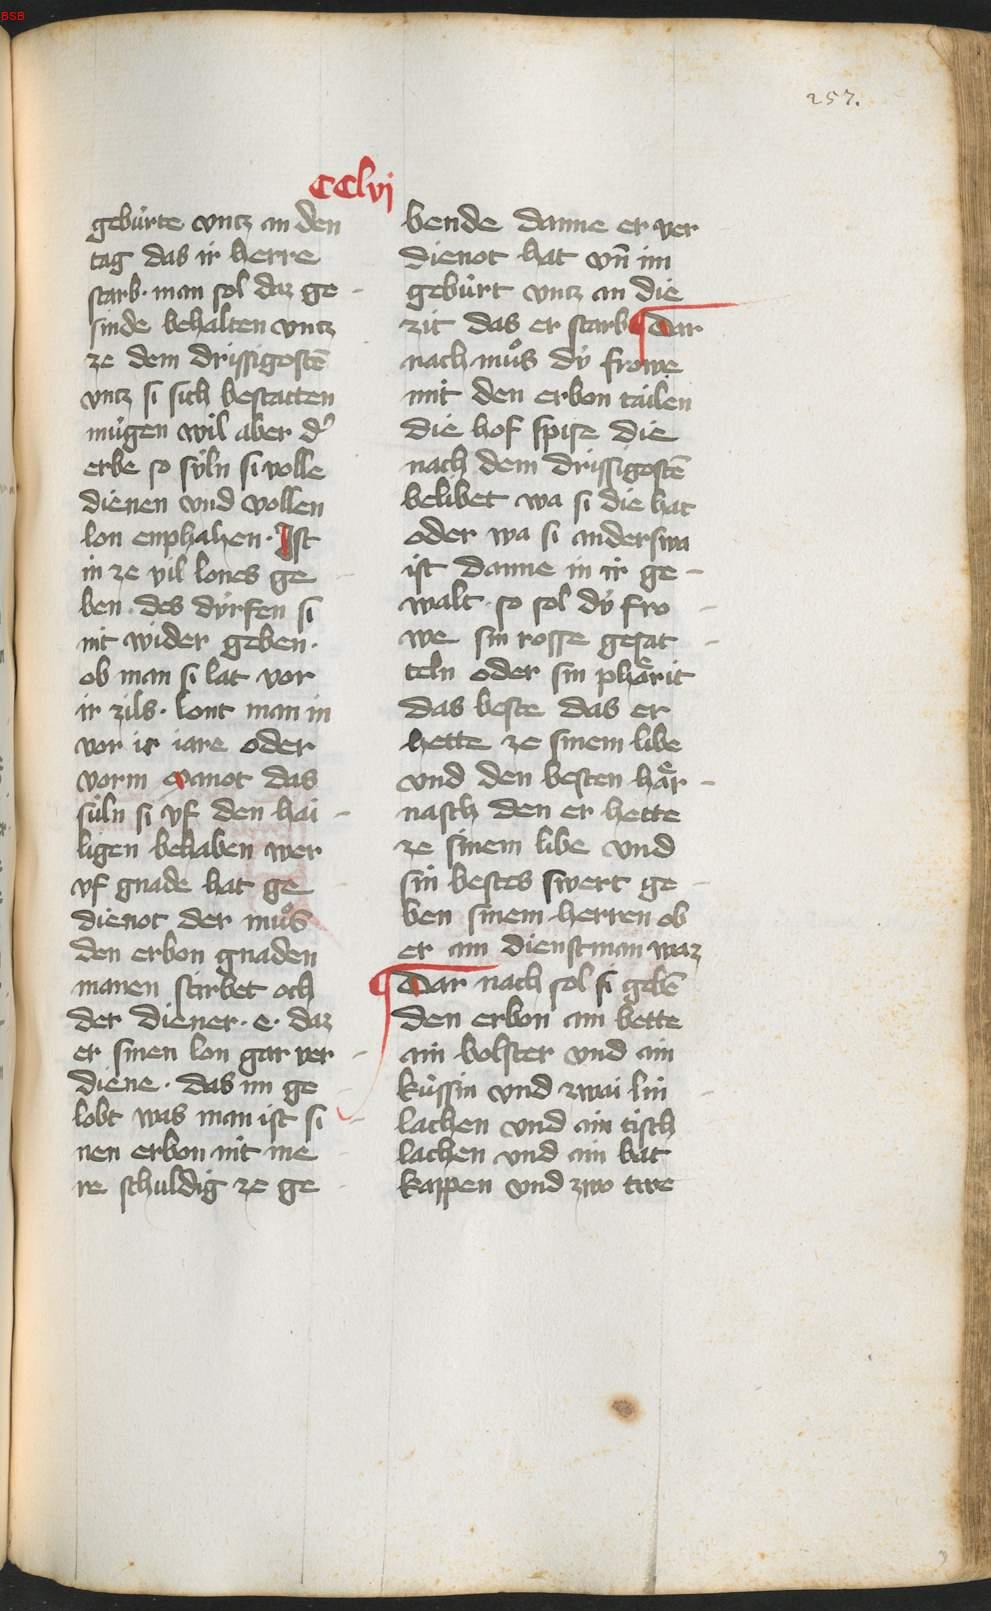 BSB
257.
CClvj
gebúrte vntz an den
tag das ir herre
starb · man sol daz ge -
sinde behalten vntz
ze dem drissigostē
vntz si sich bestatten
múgen wil aber d᾽
erbe so sv́ln si volle
dienen vnd vollen
lon enphahen · Ist
in ze vil lones ge -
ben · des dv́rfen si
nit wider geben ·
ob man si lat vor
ir zils · lont man in
vor ir iare oder
vorm manot das
súln si vf den hai -
ligen behaben wer
vf gnade hat ge -
dienot der můs
den erbon gnaden
manen stirbet och
der diener · e · daz
er sinen lon gar ver -
diene · das im ge -
lobt was man ist si -
nen erbon nit me -
re schuldig ze ge -
bende danne er ver
dienot hat vn̄ im
gebúrt vntz an die
zit das er starb ¶ Dar
nach můs dv́ frowe
mit den erbon tailen
die hof spise die
nach dem drissigostē
belibet wa si die hat
oder wa si anderswa
ist danne in ir ge -
walt · so sol dv́ fro -
we sin rosse gesat -
teln oder sin phärit
das beste das er
hette ze sinem libe
vnd den besten här -
nasch den er hette
ze sinem libe vnd
sin bestes swert ge -
ben sinem herren ob
er ain dienstman waz
¶ Dar nach sol si gebē
den erbon ain bette
ain bolster vnd ain
kússin vnd zwai lin -
lachen vnd ain tisch
lachen vnd ain bat
kappen vnd zwo twe